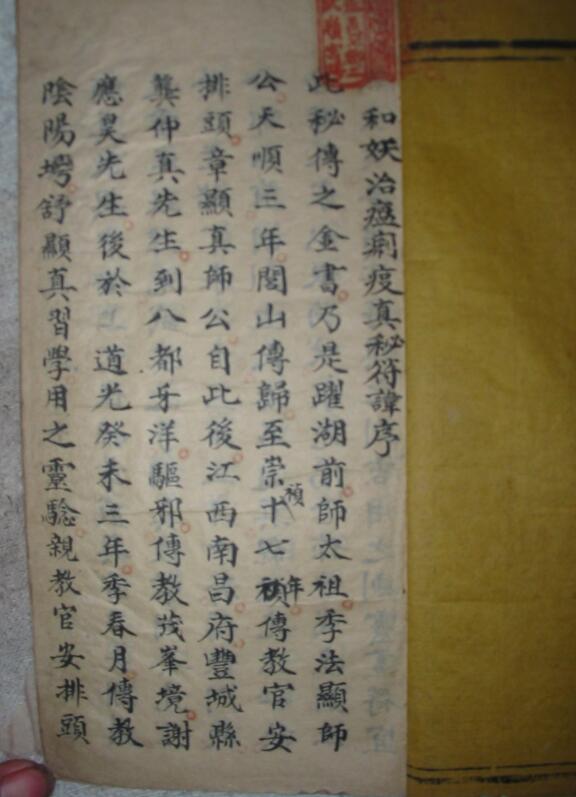 和妖治瘟痢疫真秘符諱序
此秘傳之金書乃是躍湖前師太祖季法顯師
公天順三年閭山傳歸至崇禎十七年傳教官安
排頭章顯真師公自此後江西南昌府豐城縣
龔仲真先生到八都牙洋驅邪傳教茂峯境謝
應昊先生後於道光癸未三年季春月傳教
陰陽塆舒顯真習學用之靈驗親教官安排頭